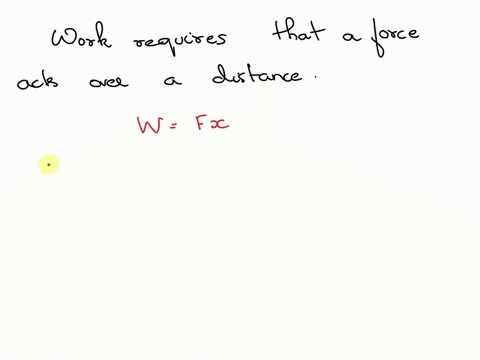 Work requires that a force
acts over a distance.
W = Fx